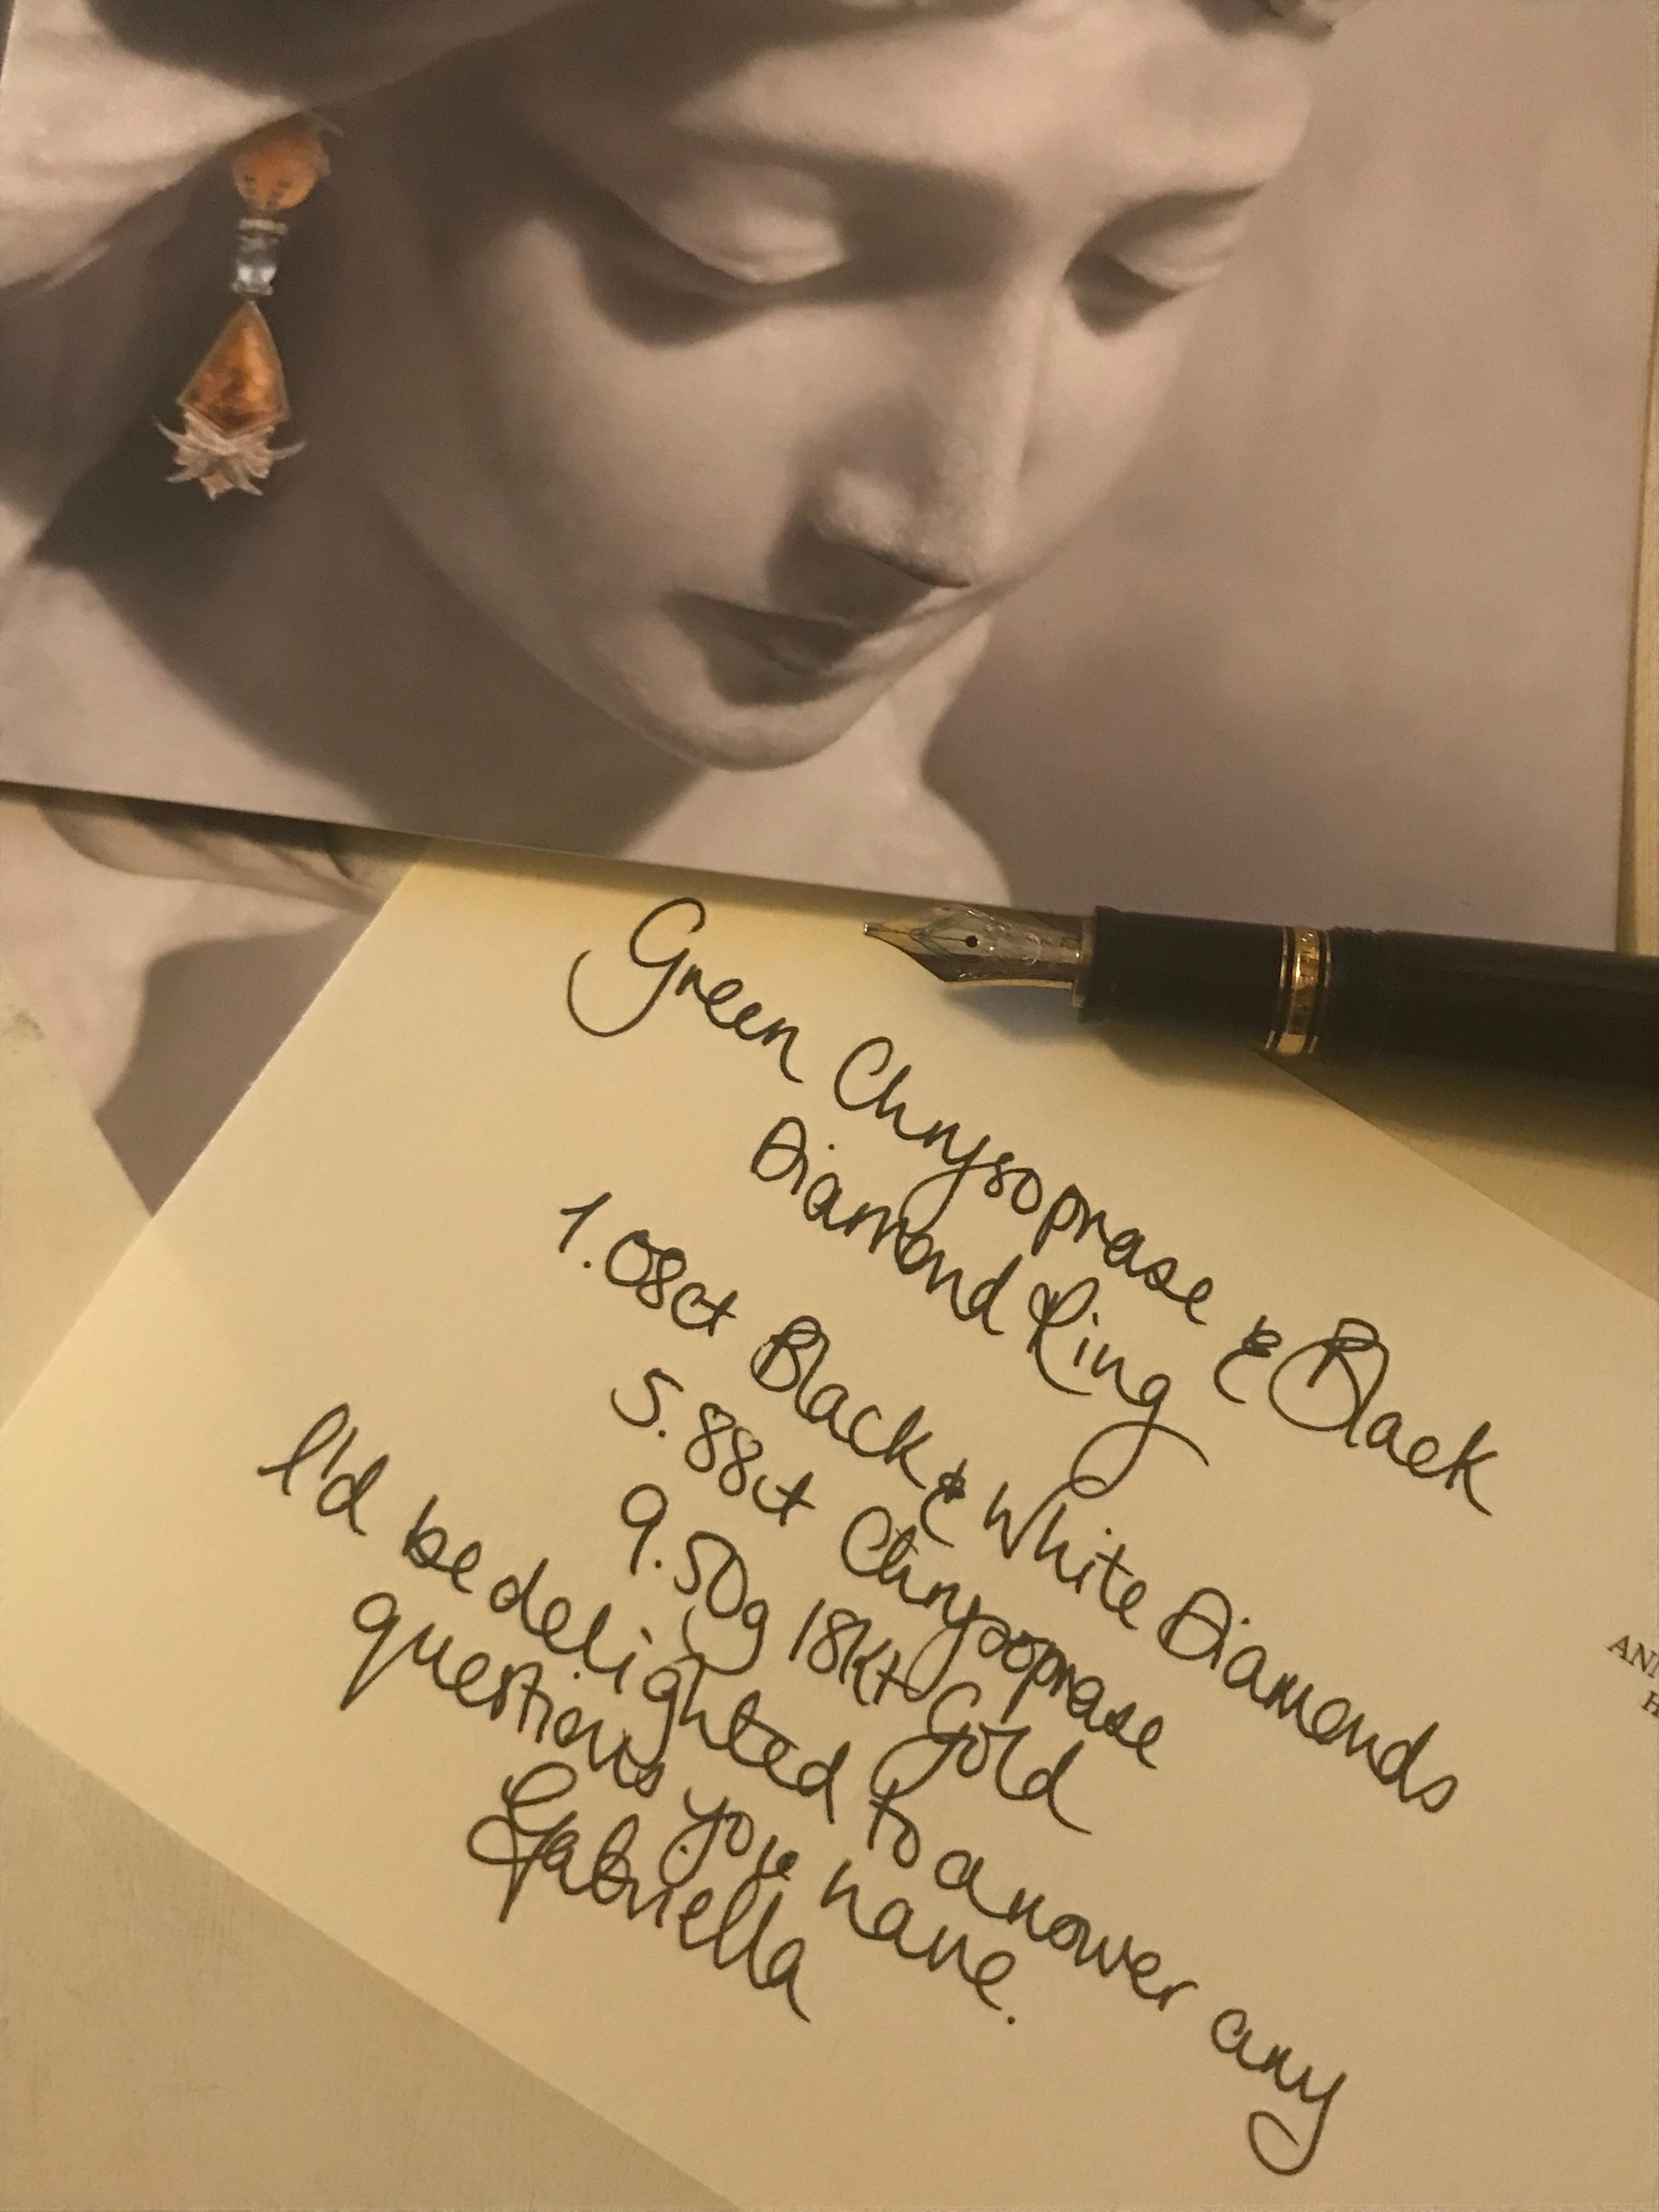 Green Chrysoprase & Black
Diamond Ring
1.08ct Black & White Diamonds
5.88ct Chrysoprase
9.50g 18kt Gold
I'd be delighted to answer any
questions you have.
Gabriella